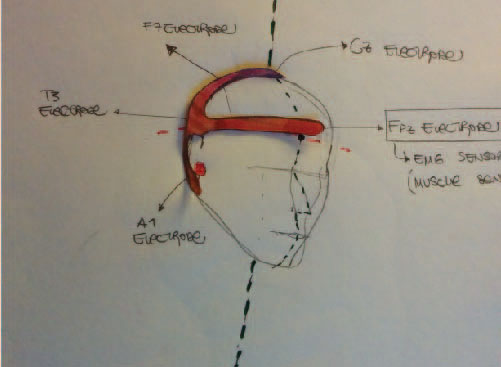 F7 ELECTRODE
CZ ELECTRODE
T3
ELECTRODE
FPZ ELECTRODE
EMG SENSO
(MUSCLE SEN
A1
ELECTRODE